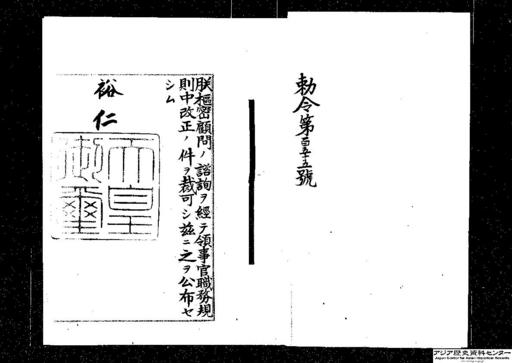 勅令第百五十五號
朕樞密顧問ノ諮詢ヲ經テ領事官職務規
則中改正ノ件ヲ裁可シ茲ニ之ヲ公布セ
シム
裕仁
天皇
御璽
アジア歴史資料センター
Japan Center for Asian Historical Records